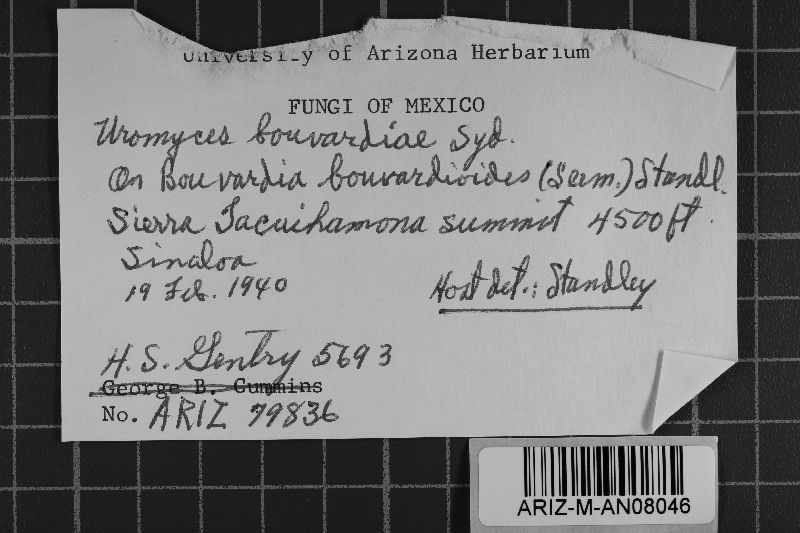 University of Arizona Herbarium
FUNGI OF MEXICO
Uromyces bouvardiae Syd.
On Bouvardia bouvardioides (Seem.) Standl.
Sierra Tacuichamona summit 4500 ft.
Sinaloa
19 Feb. 1940
Host det.: Standley
H. S. Gentry 5693
George B. Cummins
No. ARIZ 79836
ARIZ-M-AN08046